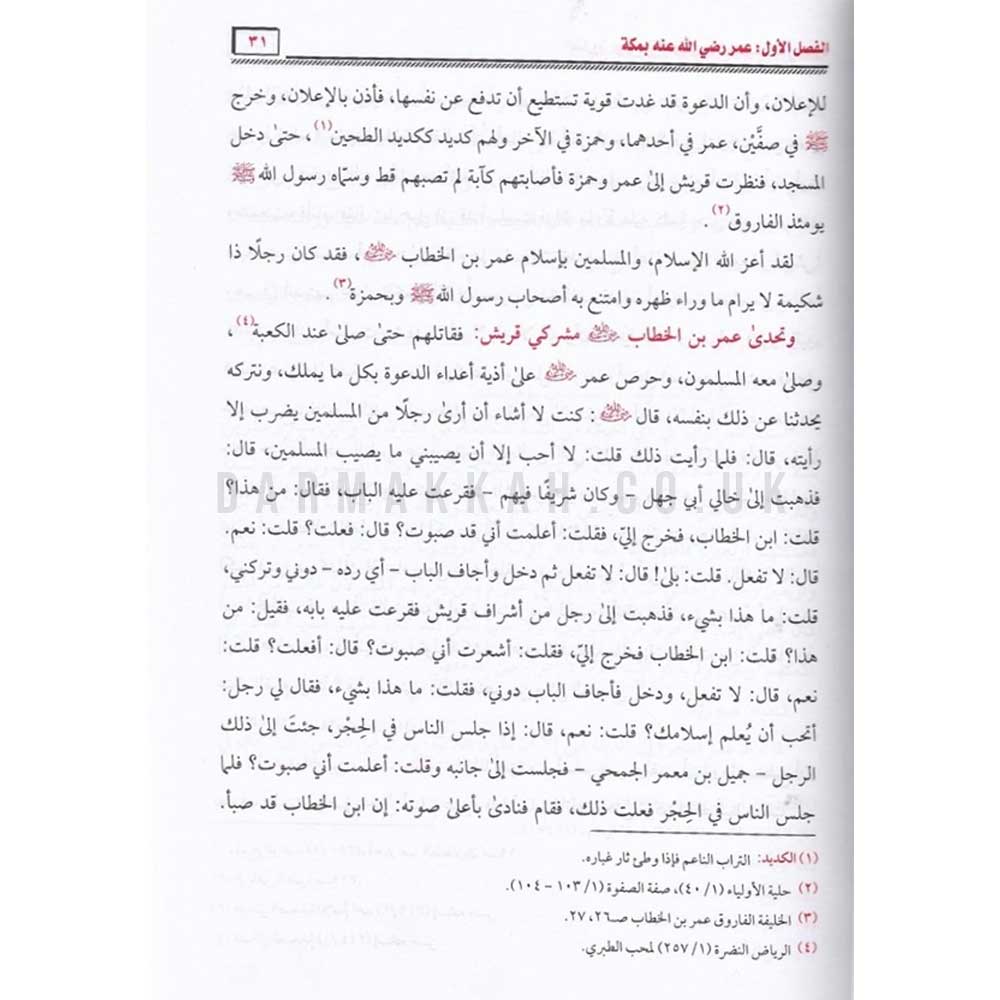 الفصل الأول: عمر رضي الله عنه بمكة
٣١
للإعلان، وأن الدعوة قد غدت قوية تستطيع أن تدفع عن نفسها، فأذن بالإعلان، وخرج
ﷺ في صفَّيْن، عمر في أحدهما، وحمزة في الآخر ولهم كديد ككديد الطحين(١)، حتىٰ دخل
المسجد، فنظرت قريش إلىٰ عمر وحمزة فأصابتهم كآبة لم تصبهم قط وسمَّاه رسول الله ﷺ
يومئذ الفاروق(٢).
لقد أعز الله الإسلام، والمسلمين بإسلام عمر بن الخطاب رضي الله عنه، فقد كان رجلًا ذا
شكيمة لا يرام ما وراء ظهره وامتنع به أصحاب رسول الله ﷺ وبحمزة(٣)
وتحدىٰ عمر بن الخطاب رضي الله عنه مشركي قريش: فقاتلهم حتىٰ صلىٰ عند الكعبة(٤)،
وصلىٰ معه المسلمون، وحرص عمر رضي الله عنه علىٰ أذية أعداء الدعوة بكل ما يملك، ونتركه
يحدثنا عن ذلك بنفسه، قال رضي الله عنه: كنت لا أشاء أن أرىٰ رجلًا من المسلمين يضرب إلا
رأيته، قال: فلما رأيت ذلك قلت: لا أحب إلا أن يصيبني ما يصيب المسلمين، قال:
فذهبت إلىٰ خالي أبي جهل – وكان شريفًا فيهم – فقرعت عليه الباب، فقال: من هذا؟
DARMAKKAH.CO.UK
قلت: ابن الخطاب، فخرج إليّ، فقلت: أعلمت أني قد صبوت؟ قال: فعلت؟ قلت: نعم.
قال: لا تفعل. قلت: بلىٰ! قال: لا تفعل ثم دخل وأجاف الباب – أي رده – دوني وتركني،
قلت: ما هذا بشيء، فذهبت إلىٰ رجل من أشراف قريش فقرعت عليه بابه، فقيل: من
هذا؟ قلت: ابن الخطاب فخرج إليّ، فقلت: أشعرت أني صبوت؟ قال: أفعلت؟ قلت:
نعم، قال: لا تفعل، ودخل فأجاف الباب دوني، فقلت: ما هذا بشيء، فقال لي رجل:
أتحب أن يُعلم إسلامك؟ قلت: نعم، قال: إذا جلس الناس في الحِجْر، جئتَ إلىٰ ذلك
الرجل – جميل بن معمر الجمحي – فجلست إلىٰ جانبه وقلت: أعلمت أني صبوت؟ فلما
جلس الناس في الحِجْر فعلت ذلك، فقام فنادىٰ بأعلىٰ صوته: إن ابن الخطاب قد صبأ.
(١) الكديد: التراب الناعم فإذا وطئ ثار غباره.
(٢) حلية الأولياء (١/ ٤٠)، صفة الصفوة (١/ ١٠٣ – ١٠٤).
(٣) الخليفة الفاروق عمر بن الخطاب صـ٢٦، ٢٧.
(٤) الرياض النضرة (١/ ٢٥٧) لمحب الطبري.